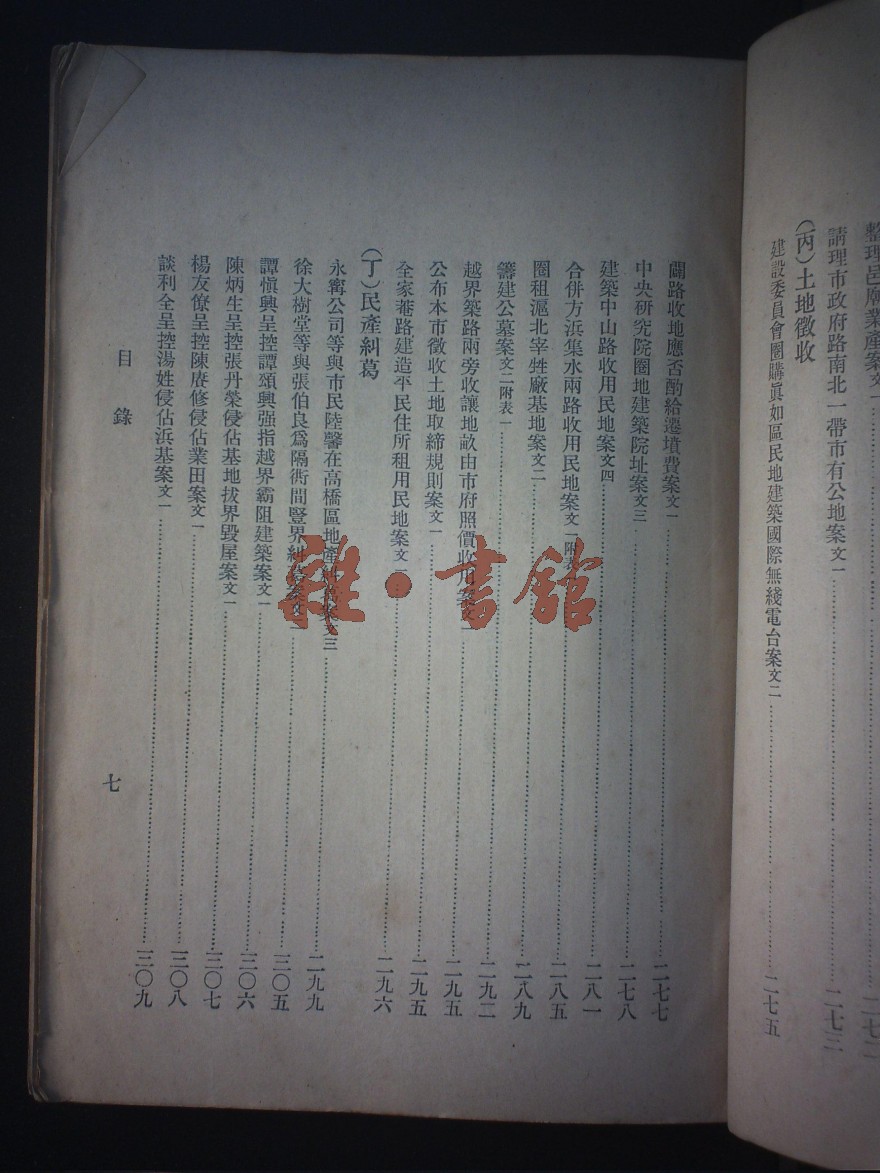 整理邑廟業產案文一
請理市政府路南北一帶市有公地案文一……二七三
(丙)土地徵收
建設委員會圈購眞如區民地建築國際無綫電台案文二……二七五
闢路收地應否酌給遷墳費案文一……二七七
中央研究院圈地建築院址案文三……二七八
建築中山路收用民地案文四……二八一
合併方浜集水兩路收用民地案文一附表……二八五
圈租滬北宰牲廠基地案文二……二八九
籌建公墓案文二附表一……二九二
越界築路兩旁收讓地畝由市府照價收用案……二九五
公布本市徵收土地取締規則案文一……二九五
全家菴路建造平民住所租用民地案文一……二九六
(丁)民產糾葛
永甯公司等與市民陸馨在高橋區地產文三……二九九
徐大樹堂等與張伯良爲隔衖間豎界糾……三〇五
譚愼興呈控譚頌興强指越界霸阻建築案文一……三〇六
陳炳生呈控張丹榮侵佔基地拔界毀屋案文一……三〇七
楊友僚呈控陳賡修侵佔業田案文一……三〇八
談利全呈控湯姓侵佔浜基案文一……三〇九
目錄
七
雜·書館